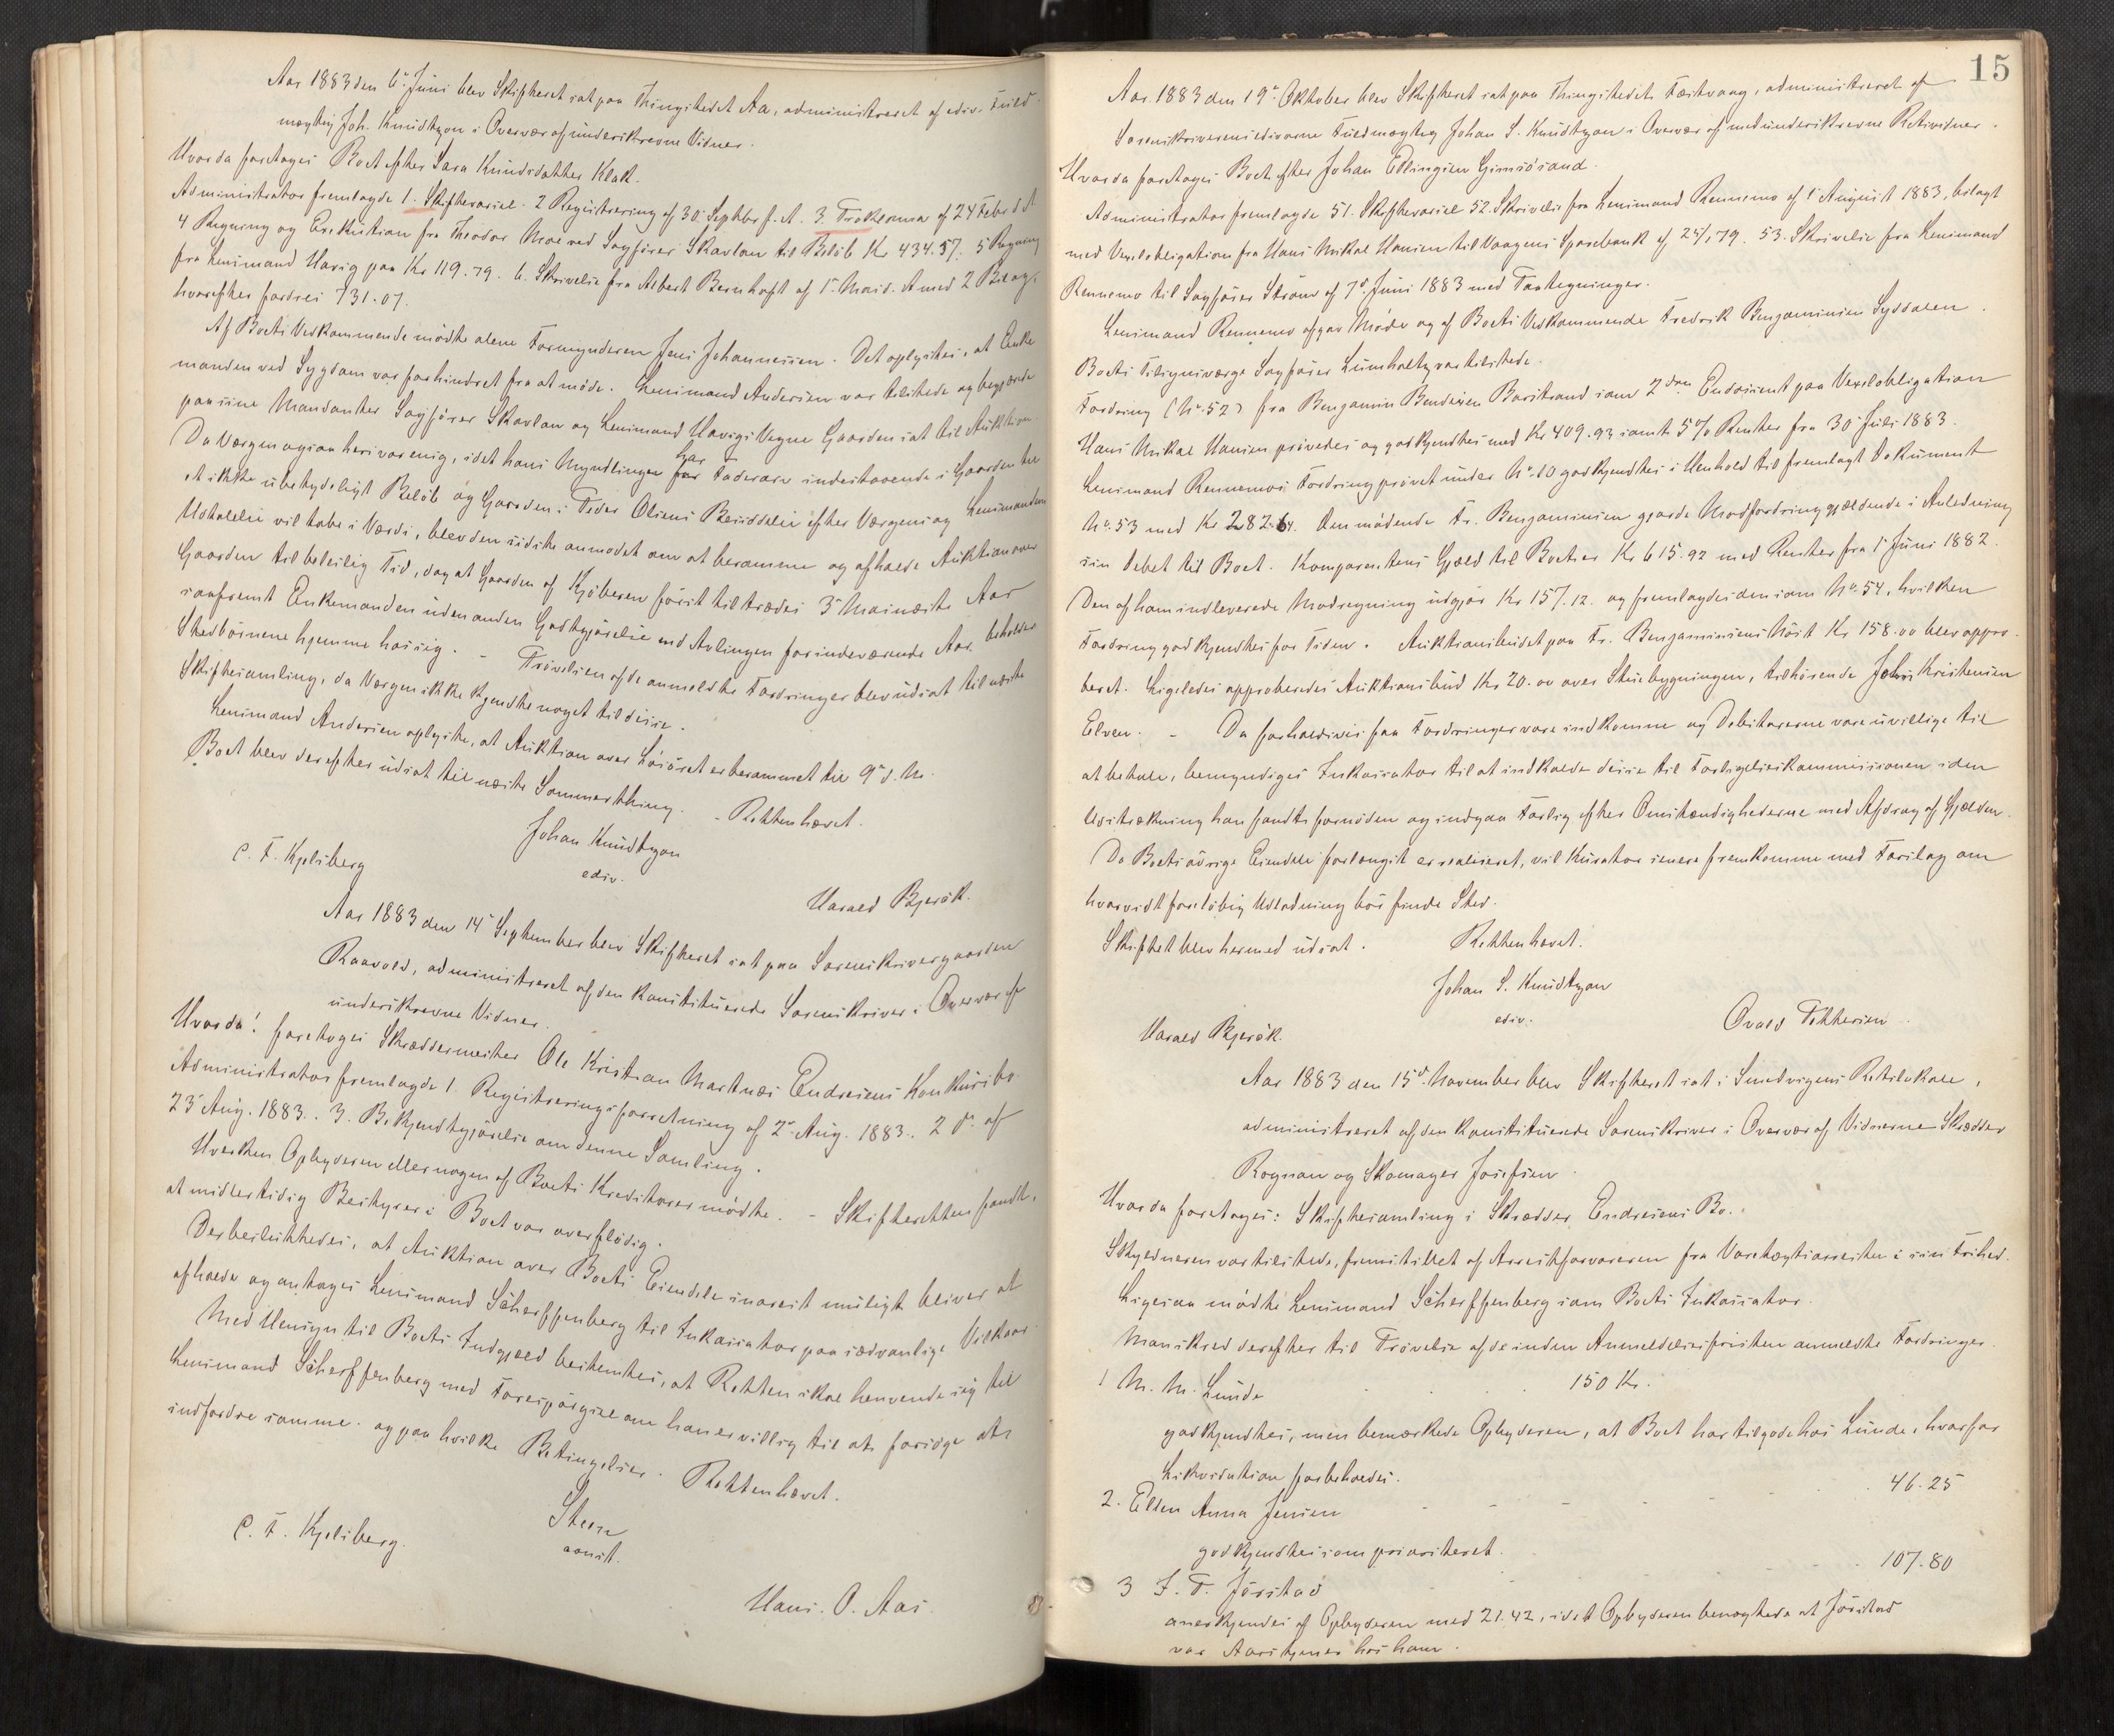 Aar 1883 den 6te Juni blev Skifteret sat paa Thingstedet Aa, administreret af ediv. Fuld-
mægtig Joh. Knudtzon i Overvær af underskrevne Vidner.
Hvorda foretoges Boet efter Sara Knudsdatter Klak.
Administrator fremlagde 1. Skiftevarsel. 2 Registrering af 30 Septbr f. A. 3. Proklama af 24 Febr d A
4 Regning og Exekution fra Theodor Moe ved Sagfører Skavlan til Beløb Kr 434.57. 5 Regning
fra Lensmand Havig paa Kr 119.79. 6. Skrivelse fra Albert Bernhoft af 1. Mai d. A med 2 Bilag,
hvorefter fordres 731.07.
Af Boets Vedkommende mødte alene Formynderen Jens Johannessen. Det oplystes, at Enke
manden ved Sygdom var forhindret fra at møde. Lensmand Andersen var tilstede og begjærede
paa sine Mandanter Sagfører Skavlan og Lensmand Havigs Vegne Gaarden sat til Auktion.
Da Værgen ogsaa heri var enig, idet hans Myndlinger har Fadersarv indestaaende i Gaarden til
et ikke ubetydeligt Beløb og Gaarden i Peder Olsens Besiddelse efter Værgens og Lensmandens
Udtalelse vil tabe i Værdi, blev den sidste anmodet om at beramme og afholde Auktion over
Gaarden til beleilig Tid, dog at Gaarden af Kjøberen først tiltrædes 3die Mai næste Aar
saafremt Enkemanden uden anden Godtgjørelse end Avlingen for indeværende Aar beholder
Stedbørnene hjemme hos sig. – Prøvelsen af de anmeldte Fordringer blev udsat til næste
Skiftesamling, da Værgen ikke kjendte noget til disse.
Lensmand Andersen oplyste, at Auktion over Løsøret er berammet til 9de d. M.
Boet blev derefter udsat til næste Sommerthing. – Retten hævet.
Johan Knudtzon
ediv.
C. F. Kjelsberg
Harald Bjerøk.
Aar 1883 den 14de September blev Skifteret sat paa Sorenskrivergaarden
Raavold, administreret af den konstituerede Sorenskriver i Overvær af
underskrevne Vidner.
Hvorda! foretoges Skræddermester Ole Kristian Martnæs Endresens Konkursbo.
Administrator fremlagde 1. Registreringsforretning af 2den Aug. 1883. 2 do. af
23 Aug. 1883. 3. Bekjendtgjørelse om denne Samling.
Hverken Opbyderen eller nogen af Boets Kreditorer mødte. – Skifteretten fandt,
at midlertidig Bestyrer i Boet var overflødig.
Derbesluttedes, at Auktion over Boets Eiendele snarest muligt bliver at
afholde og antoges Lensmand Scherffenberg til Inkassator paa sædvanlige Vilkaar.
Med Hensyn til Boets Indgjæld bestemtes, at Retten skal henvende sig til
Lensmand Scherffenberg med Forespørgsel om han er villig til at forsøge at
indfordre samme og paa hvilke Betingelser. Retten hævet.
Steen
const.
C. F. Kjelsberg.
Hans. O. Aas.
15
Aar 1883 den 19de Oktober blev Skifteret sat paa Thingstedet Festvaag, administreret af
Sorenskriverens edsvorne Fuldmægtig Johan S. Knudtzon i Overvær af nedunderskrevne Retsvidner.
Hvorda foretoges Boet efter Johan Edlingsen Gimsøsand.
Administrator fremlagde 51. Skiftevarsel 52. Skrivelse fra Lensmand Rennemo af 1 August 1883, bilagt
med Vexelobligation fra Hans Mikal Hansen til Vaagens Sparebank af 25/1 79. 53. Skrivelse fra Lensmand
Rennemo til Sagfører Strøm af 7de Juni 1883 med Paategninger.
Lensmand Rennemo afgav Møde og af Boets Vedkommende Fredrik Benjaminsen Syddalen.
Boets Tilsynsværge Sagfører Lumholtz var tilstede.
Fordring (No. 52) fra Benjamin Bendixen Barstrand som 2den Endossent paa Vexelobligation
Hans Mikal Hansen prøvedes og godkjendtes med Kr 409.93 samt 5% Renter fra 30 Juli 1883.
Lensmand Rennemos Fordring prøvet under No. 10 godkjendtes i Henhold til fremlagt Dokument
No. 53 med Kr 282.64. Den mødende Fr. Benjaminsen gjorde Modfordring gjældende i Anledning
sin Debet til Boet. Komparentens Gjæld til Boet er Kr 615.92 med Renter fra 1 Juni 1882.
Den af ham indleverede Modregning udgjør Kr 157.12. og fremlagdes den som No. 54, hvilken
Fordring godkjendtes for Tiden. Auktionsbudet paa Fr. Benjaminsens Høst Kr 158.00 blev appro-
beret. Ligeledes approberedes Auktionsbud Kr 20.00 over Stuebygningen, tilhørende Johs Kristensen
Elven. – Da forholdsvis faa Fordringer vare indkomne og Debitorerne vare uvillige til
at betale, bemyndiges Inkassator til at indkalde disse til Forligelseskommissionen i den
Udstrækning han fandt fornøden og indgaa Forlig efter Omstændighederne med Afdrag af Gjælden.
Da Boets øvrige Eiendele forlængst er realiseret, vil Kurator senere fremkomme med Forslag om
hvorvidt foreløbig Udlodning bør finde Sted.
Skiftet blev hermed udsat. Retten hævet.
Johan S. Knudtzon
ediv.
Harald Bjerøk.
Ovald Pettersen
Aar 1883 den 15de November blev Skifteret sat i Smedvigens Retslokale,
administreret af den konstituerede Sorenskriver i Overvær af Vidnerne Skrædder
Rognan og Skomager Josefsen.
Hvorda foretoges: Skiftesamling i Skrædder Endresens Bo.
Skyldneren var tilstede, fremstillet af Arrestforvareren fra Varetægtsarresten i sin Frihed.
Ligesaa mødte Lensmand Scherffenberg som Boets Inkassator.
Man skred derefter til Prøvelse af de inden Anmeldelsesfristen anmeldte Fordringer.
1 M. M. Lunde 150 Kr.
godkjendtes, men bemærkede Opbyderen, at Boet har tilgode hos Lunde, hvorfor
Likvidation forbeholdes.
2. Ellen Anna Jensen 46.25
godkjendtes som prioriteret.
3 J. P. Jørstad 107.80
anerkjendes af Opbyderen med 21.42, idet Opbyderen benægtede at Jørstad
var Aarstjener hos ham.